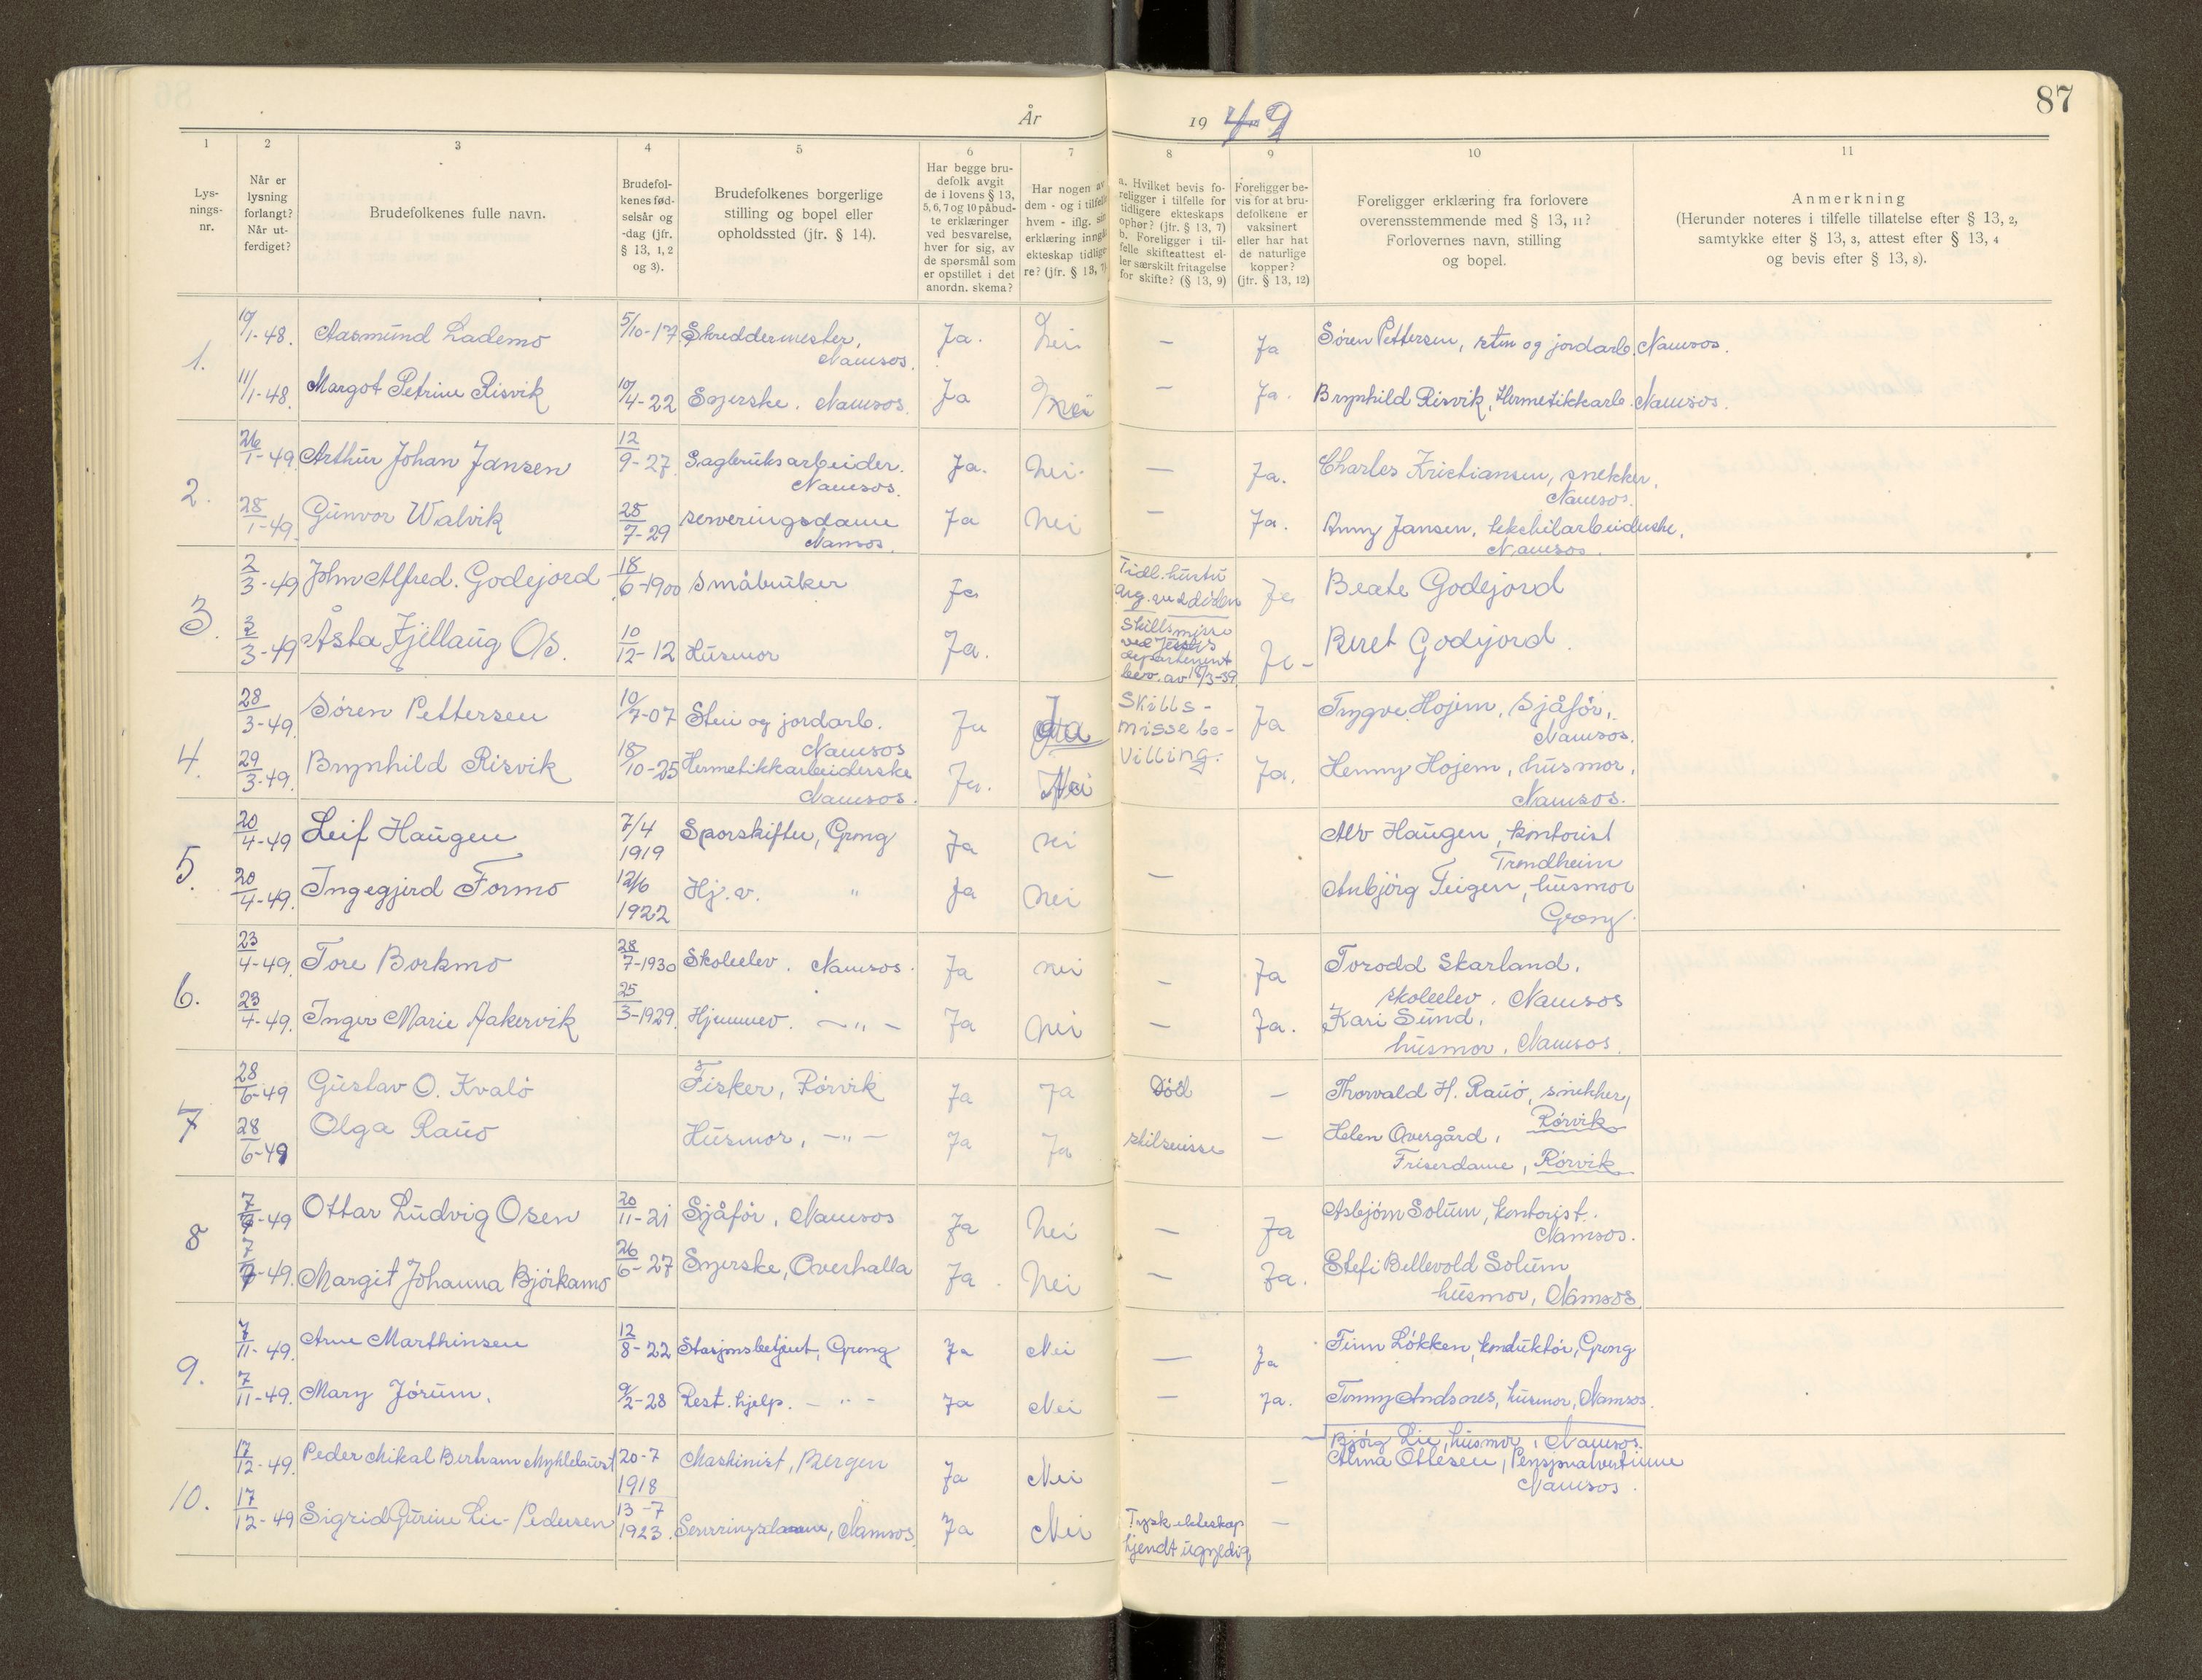 87
År 19 49
1
2
3
4
5
6
7
8
9
10
11
Lys-
nings-
nr.
Når er
lysning
forlangt?
Når ut-
ferdiget?
Brudefolkenes fulle navn.
Brudefol-
kenes fød-
selsår og
-dag (jfr.
§ 13, 1, 2
og 3).
Brudefolkenes borgerlige
stilling og bopel eller
opholdssted (jfr. § 14).
Har begge bru-
defolk avgit
de i lovens § 13,
5, 6, 7 og 10 påbud-
te erklæringer
ved besvarelse,
hver for sig, av
de spørsmål som
er opstillet i det
anordn. skema?
Har nogen av
dem - og i tilfelle
hvem - iflg. sin
erklæring inngått
ekteskap tidlige-
re? (jfr. § 13, 7)
a. Hvilket bevis fo-
religger i tilfelle for
tidligere ekteskaps
ophør? (jfr. § 13, 7)
b. Foreligger i til-
felle skifteattest el-
ler særskilt fritagelse
for skifte? (§ 13, 9)
Foreligger be-
vis for at bru-
defolkene er
vaksinert
eller har hat
de naturlige
kopper?
(jfr. § 13, 12)
Foreligger erklæring fra forlovere
overensstemmende med § 13, 11?
Forlovernes navn, stilling
og bopel.
Anmerkning
(Herunder noteres i tilfelle tillatelse efter § 13, 2,
samtykke efter § 13, 3, attest efter § 13, 4
og bevis efter § 13, 8).
1. 10/1-48. Aasmund Lademo 5/10-17 Skreddermester, Namsos. Ja. Nei – Ja Søren Pettersen, sten og jordarb. Namsos.
11/1-48. Margot Petrine Risvik 10/4-22 Syerske. Namsos. Ja Nei – Ja. Brynhild Risvik, Hermetikkarb. Namsos.
2. 26/1-49 Arthur Johan Jansen 12/9-27 Sagbruksarbeider. Namsos. Ja. Nei. – Ja. Charles Kristiansen, snekker, Namsos.
28/1-49. Gunvor Walvik 25/7-29 serveringsdame Namsos. Ja Nei – Ja. Anny Jansen, tekstilarbeiderske, Namsos.
3. 2/3-49 John Alfred. Godejord 18/6-1900 småbruker Ja Tidl. hustru avg. ved døden Ja Beate Godejord
3/3-49 Åsta Fjellaug Os. 10/12-12 Husmor Ja. Skillsmisse ved Justis departement bev. av 18/3-39 Ja- Beret Godejord.
4. 28/3-49. Søren Pettersen 10/7-07 Sten og jordarb. Namsos Ja Ja Skills- Ja Trygve Hojem, Sjåfør, Namsos.
misse be-
villing.
29/3-49. Brynhild Risvik 18/10-25 Hermetikkarbeiderske Namsos. Ja. Nei Ja. Henny Hojem, husmor, Namsos.
5. 20/4-49 Leif Haugen 7/4 1919 Sporskifter, Grong Ja nei Alv Haugen, kontorist Trondheim
20/4-49. Ingegjerd Formo 12/6 1922 Hj. v. " Ja nei – Anbjørg Teigen, husmor Grong.
6. 23/4-49. Tore Borkmo 28/7-1930 Skoleelev. Namsos. Ja nei – Ja Torodd Skarland, skoleelev. Namsos
23/4-49. Inger Marie Aakervik 25/3-1929. Hjemmev. – " – Ja nei – Ja. Kari Sund, husmor. Namsos.
7 28/6-49 Gustav O. Kvalø Fisker, Rørvik Ja Ja Død – Thorvald H. Rauø, snekker, Rørvik
28/6-49 Olga Rauø Husmor, – " – Ja Ja skilsmisse – Helen Overgård, Friserdame, Rørvik
8 7/9-49 Ottar Ludvig Osen 20/11-21 Sjåfør, Namsos Ja Nei – Ja Asbjørn Solum, kontorist. Namsos.
7/9-49. Margit Johanna Bjørkamo 26/6-27 Syerske, Overhalla Ja. Nei – Ja. Stefi Bellevold Solum husmor, Namsos
9. 7/11-49. Arne Marthinsen 12/8-22 Stasjonsbetjent, Grong Ja Nei – Ja Finn Løkken, konduktør, Grong
7/11-49. Mary Jørum. 9/2-28 Rest. hjelp. – " – Ja Nei – Ja. Tommy Andsnes, husmor, Namsos.
10. 17/12-49. Peder Mikal Bertram Myklebust 20-7 1918 Maskinist, Bergen Ja Nei – Bjørg Lie, husmor, Namsos.
Alma Ottesen, Pensjonatvertinne
Namsos.
17/12-49 Sigrid Gurine Lie-Pedersen 13-7 1923. Serveringsdame, Namsos. Ja Nei Tysk ekteskap –
kjendt ugyldig